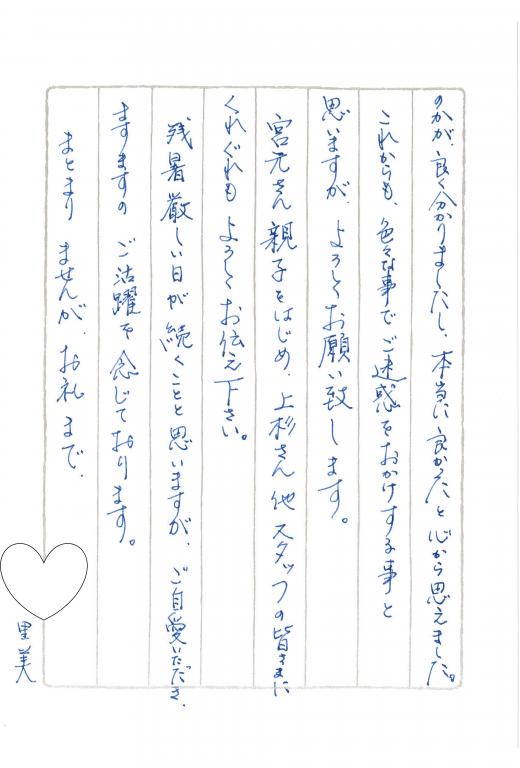 のかが、良く分かりましたし、本当に良かったと心から思えました。
これからも、色々な事でご迷惑をおかけする事と
思いますが、よろしくお願い致します。
宮元さん親子をはじめ、上杉さん他スタッフの皆さまに
くれぐれもよろしくお伝え下さい。
残暑厳しい日が続くことと思いますが、ご自愛いただき、
ますますのご活躍を念じております。
まとまりませんが、お礼まで、
里美